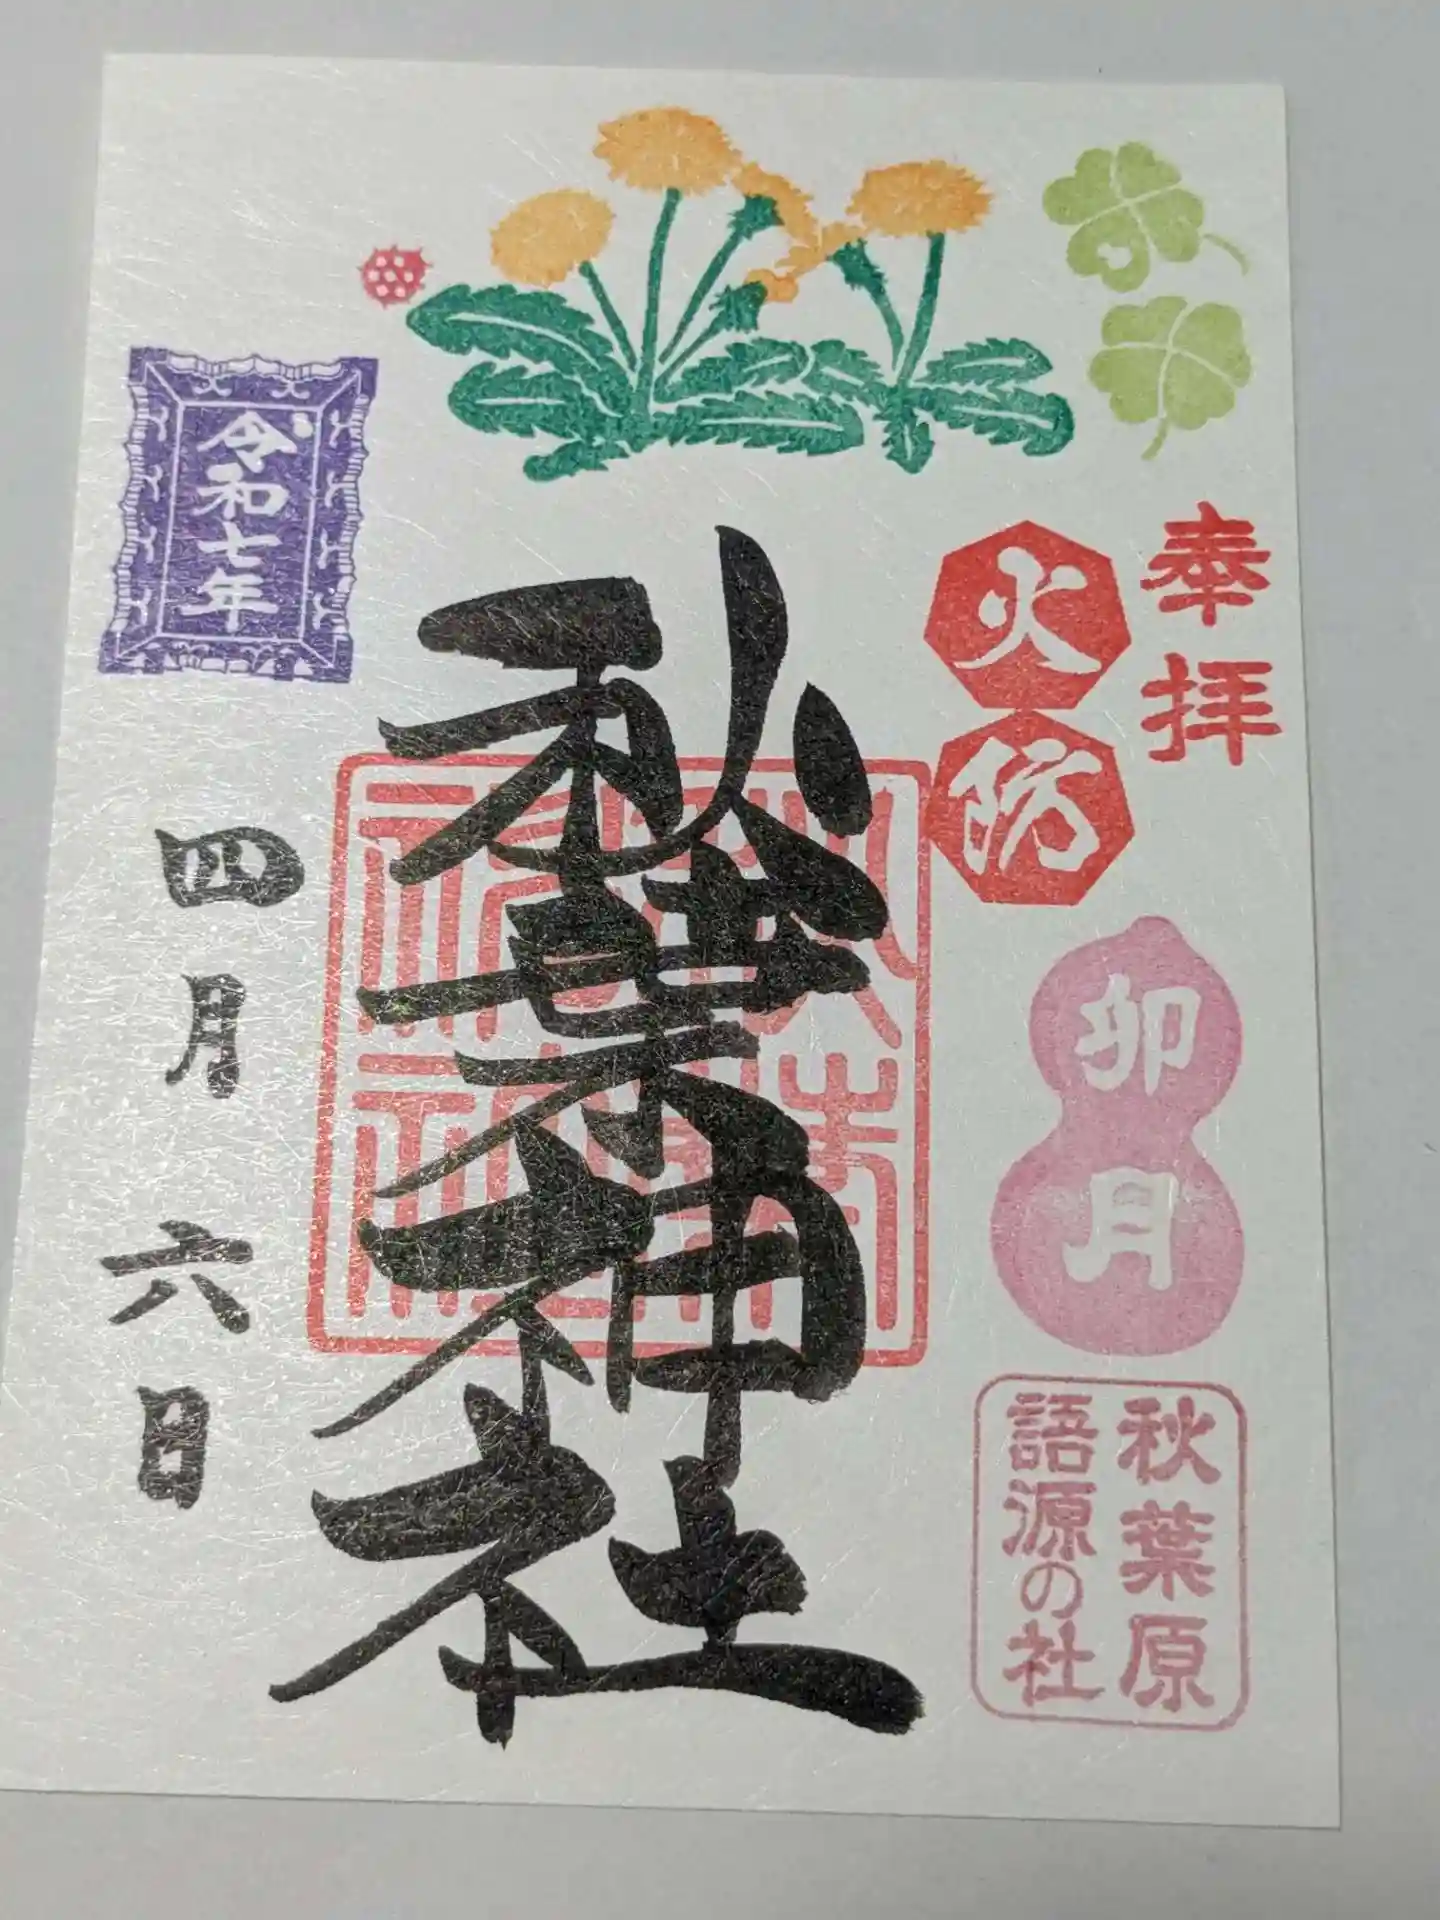 奉拝
火防
卯月
秋葉原
語源の社
秋葉神社
秋葉
神社
令和七年
四月六日